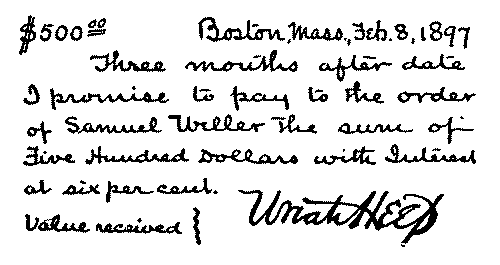 $500 00 Boston, Mass., Feb. 8, 1897
Three months after date
I promise to pay to the order
of Samuel Weller the sum of
Five Hundred Dollars with Interest
at six per cent.
Value received } Uriah Heep